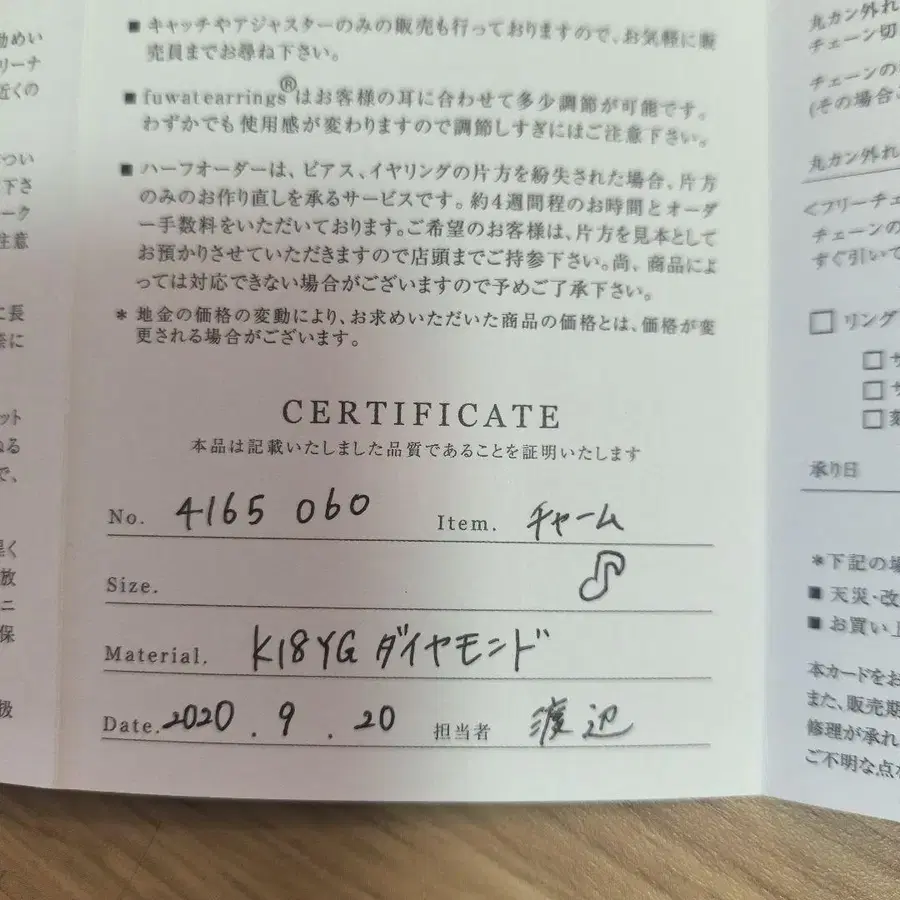 ■ キャッチやアジャスターのみの販売も行っておりますので、お気軽に販
売員までお尋ね下さい。
■ fuwatearrings®はお客様の耳に合わせて多少調節が可能です。
わずかでも使用感が変わりますので調節しすぎにはご注意下さい。
■ ハーフオーダーは、ピアス、イヤリングの片方を紛失された場合、片方
のみのお作り直しを承るサービスです。約4週間程のお時間とオーダ
ー手数料をいただいております。ご希望のお客様は、片方を見本として
お預かりさせていただきますので店頭までご持参下さい。尚、商品によ
っては対応できない場合がございますので予めご了承下さい。
* 地金の価格の変動により、お求めいただいた商品の価格とは、価格が変
更される場合がございます。
CERTIFICATE
本品は記載いたしました品質であることを証明いたします
No. 4165 060 Item. チャーム
Size.
Material. K18YG ダイヤモンド
Date. 2020 . 9 . 20 担当者 渡辺
丸カン外れ
チェーン切
チェーンの
(その場合
丸カン外れ
<フリーチェ
チェーンの
すぐ引いて
□ リング
承り日
*下記の場
■ 天災・改
■ お買い上
本カードをお
また、販売期
修理が承れ
ご不明な点